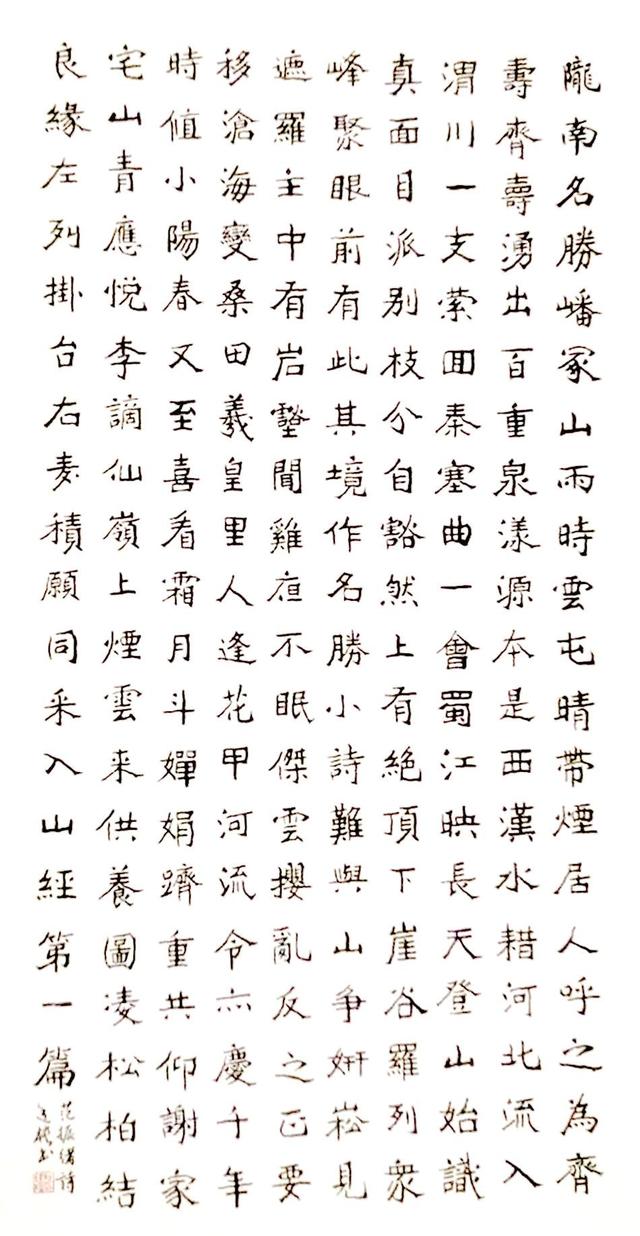 隴南名勝嶓冢山雨時雲屯晴帶煙居人呼之為齊
壽齊壽湧出百重泉漾源本是西漢水耤河北流入
渭川一支縈囬秦塞曲一會蜀江映長天登山始識
真面目派别枝分自豁然上有絕頂下崖谷羅列衆
峰聚眼前有此其境作名勝小詩難與山爭妍崧見
遮羅主中有岩壑聞雞夜不眠傑雲攖亂反之正要
移滄海變桑田羲皇里人逢花甲河流令亦慶千年
時值小陽春又至喜看霜月斗嬋娟躋重共仰謝家
宅山青應悅李謫仙嶺上煙雲来供養圖凌松柏結
良緣左列掛台右麦積願同采入山經第一篇
范振緒詩